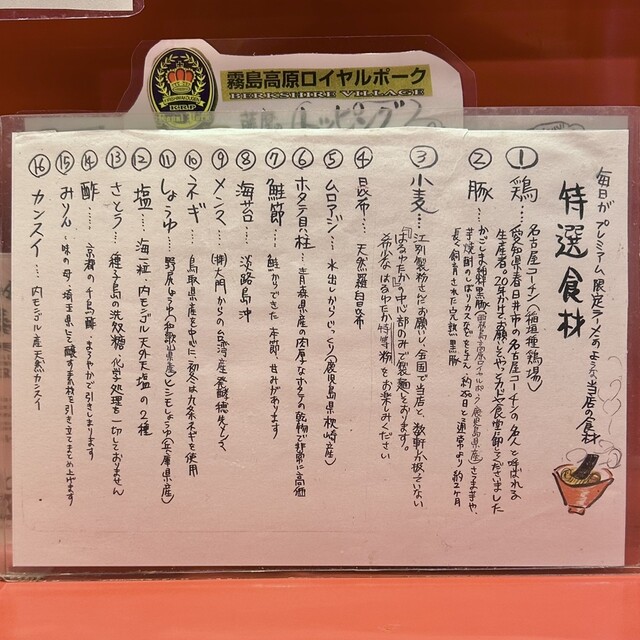 霧島高原ロイヤルポーク
BERKSHIRE VILLAGE
K・R・P
Royal Pork
トッピング
毎日がプレミアム限定ラーメンのような当店の食材
特選食材
① 鶏… 名古屋コーチン(稲垣種鶏場)
愛知県春日井市の名古屋コーチンの名人と呼ばれる
② 豚… かごしま純粋黒豚(霧島高原ロイヤルポーク 鹿児島県産)さつま芋や、
芋焼酎のしぼりカスなどを与え
長く飼育された完熟黒豚
③ 小麦… 江別製粉さんにお願いし、全国で当店と、数軒か扱っていない
『はるゆたか』の中心部のみで製麺しております。
希少なはるゆたか特等粉をお楽しみください
④ 昆布… 天然羅臼昆布
⑤ ムロアジ… 水出しからじっくり(鹿児島県枕崎産)
⑥ ホタテ貝柱… 青森県産の肉厚なホタテの乾物で非常に高価
⑦ 鮭節… 鮭からできた本節、甘みがあります
⑧ 海苔… 淡路島沖
⑨ メンマ… (株)大門からの台湾産発酵
⑩ ネギ… 鳥取県産を中心に、初冬は九条ネギを使用
⑪ しょうゆ… 野尻しょうゆ(和歌山県産)とニシしょうゆ(兵庫県産)
⑫ 塩… 海一粒、内モンゴル天外天塩の2種
⑬ さとう… 種子島の洗双糖 化学処理を一切しておりません
⑭ 酢… 京都の千鳥酢、まろやかで引きしまります
⑮ みりん… 味の母、埼玉県にて醸す素材を引き立てまとめ上げます
⑯ カンスイ… 内モンゴル産天然カンスイ